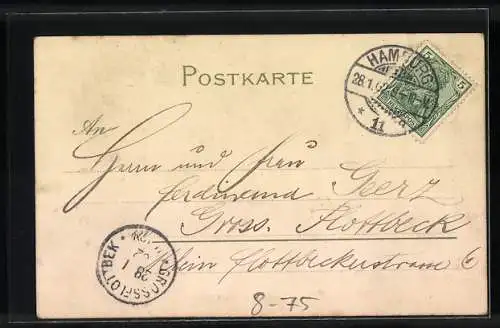 POSTKARTE
HAMBURG
28.1.
* 11
5 5
An
Herrn und Frau
Ferdinand Geerz
Gross. Flottbeck
Klein Flottbeckerstrasse 6
GROSSFLOTTBEK
28 1
8-75